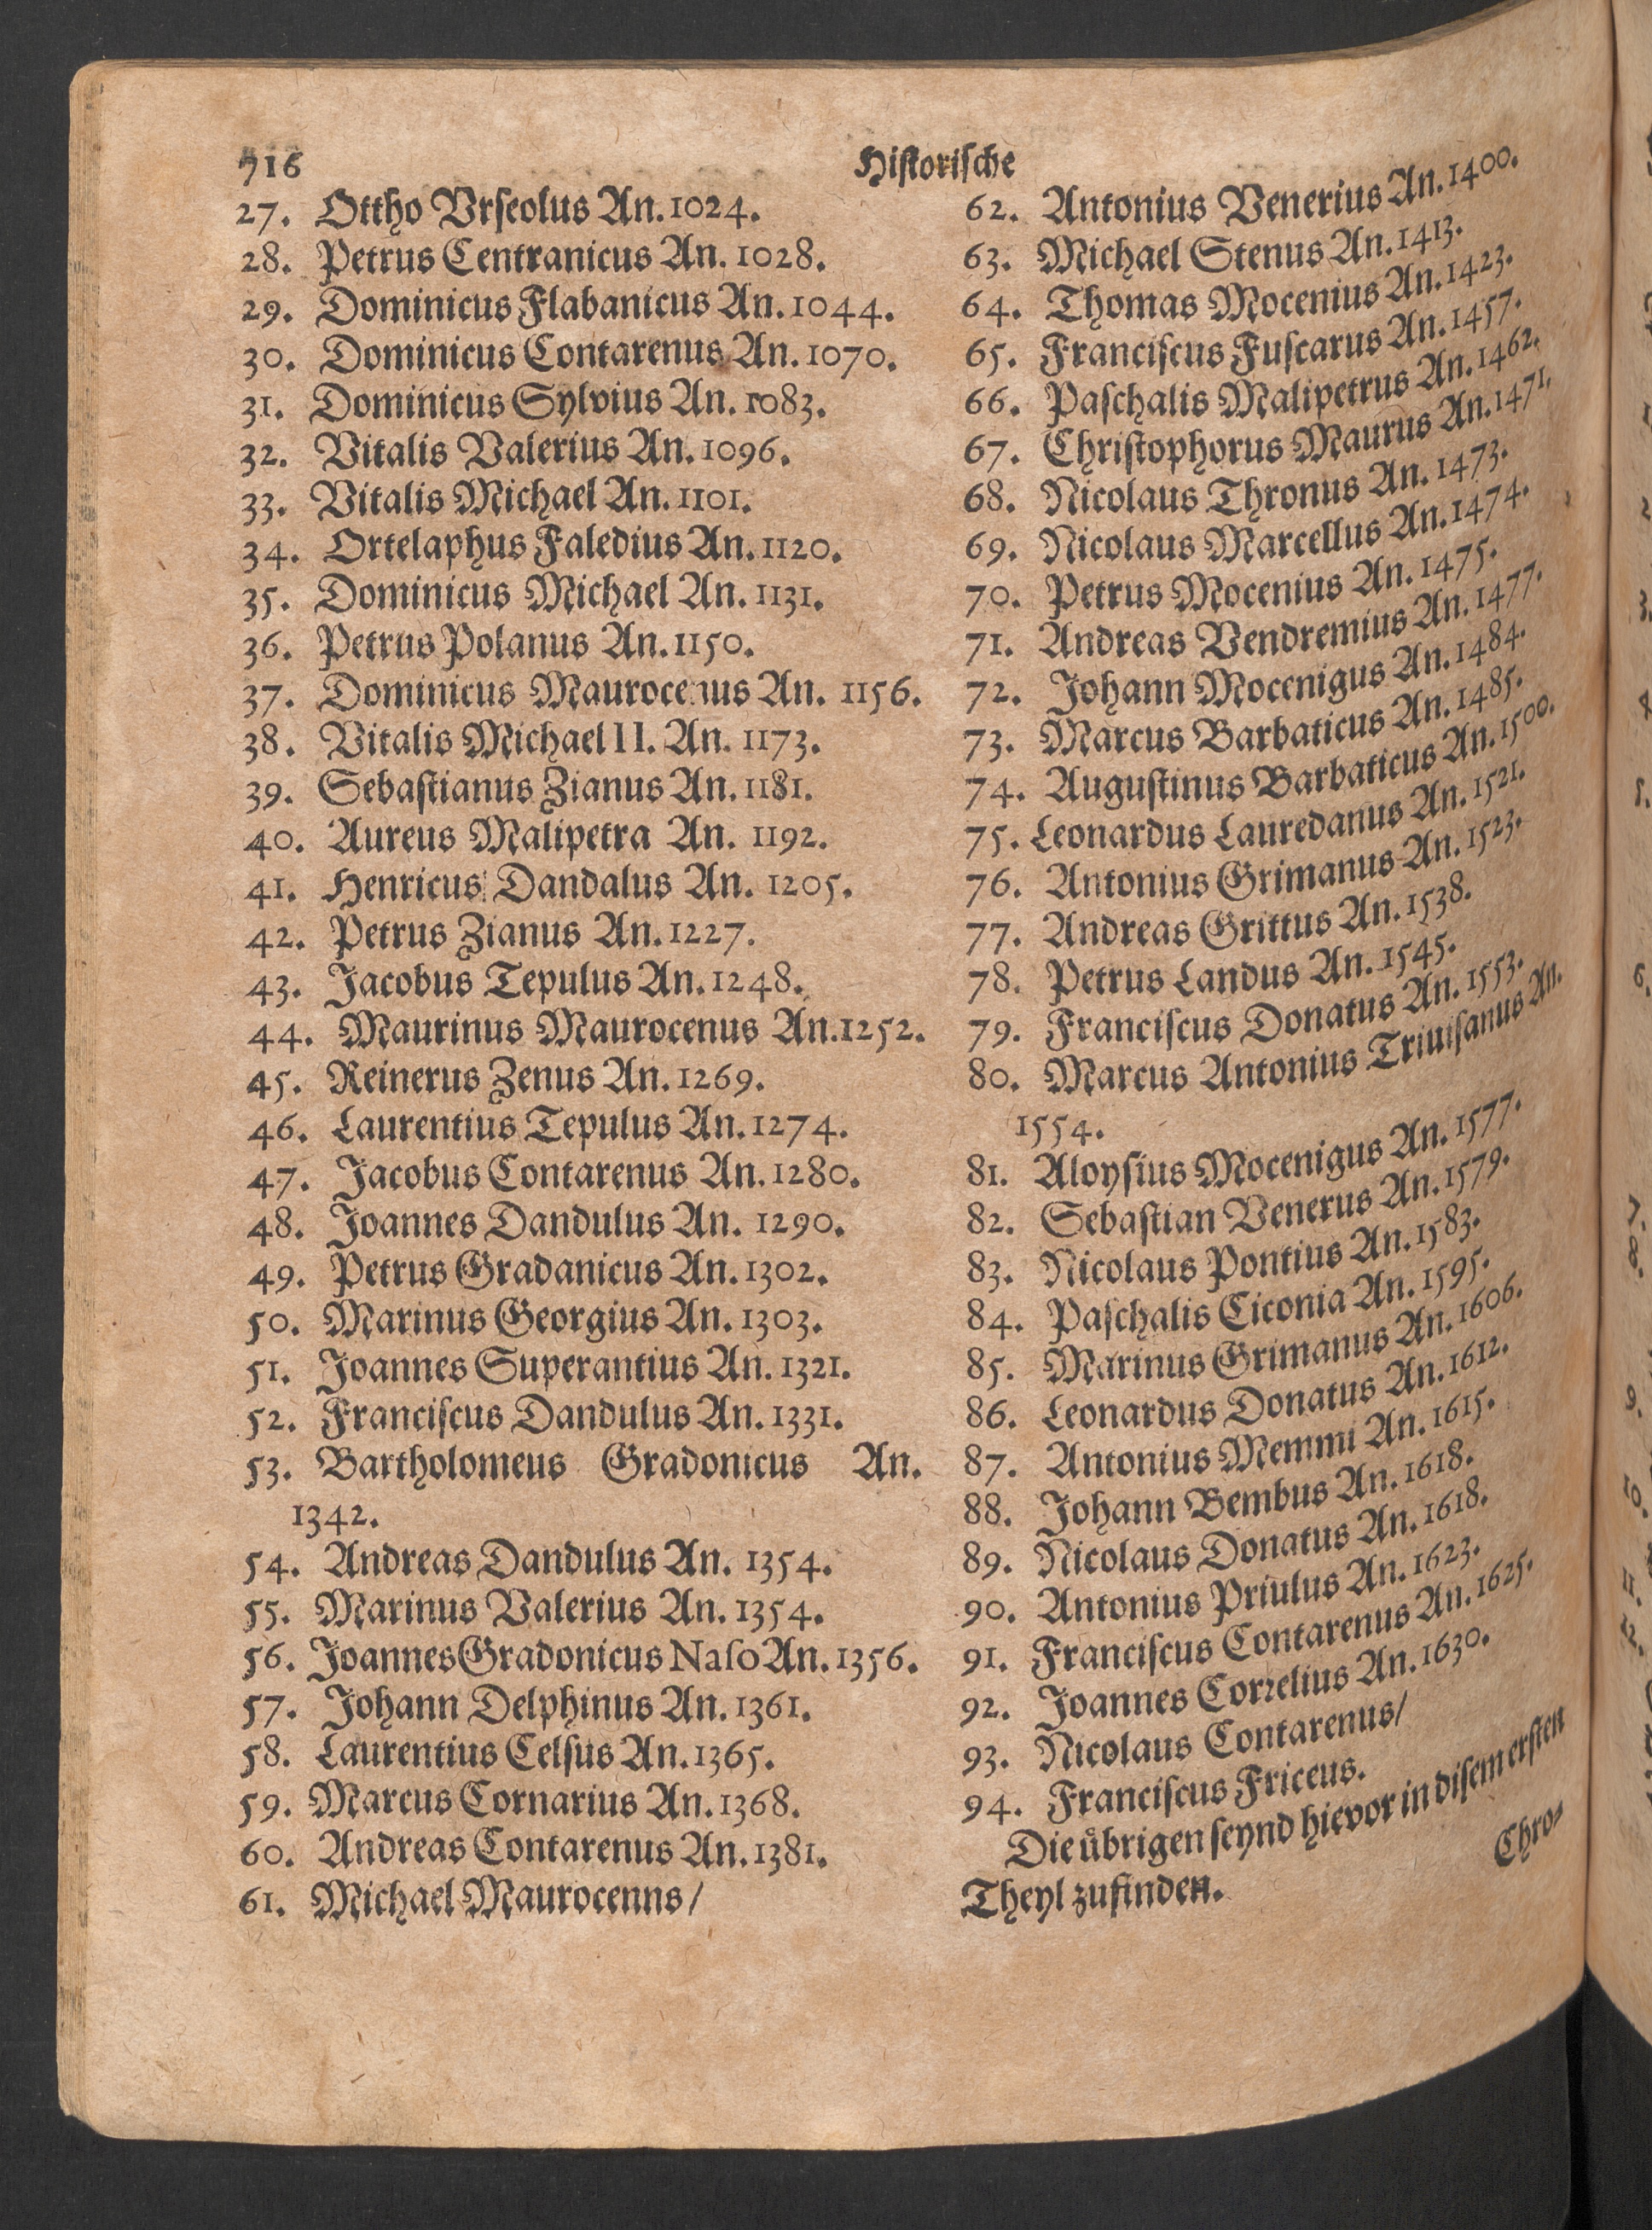 716
Historische
27. Ottho Vrseolus An. 1024.
28. Petrus Centranicus An. 1028.
29. Dominicus Flabanicus An. 1044.
30. Dominicus Contarenus An. 1070.
31. Dominicus Sylvius An. 1083.
32. Vitalis Valerius An. 1096.
33. Vitalis Michael An. 1101.
34. Ortelaphus Faledius An. 1120.
35. Dominicus Michael An. 1131.
36. Petrus Polanus An. 1150.
37. Dominicus Maurocenus An. 1156.
38. Vitalis Michael II. An. 1173.
39. Sebastianus Zianus An. 1181.
40. Aureus Malipetra An. 1192.
41. Henricus Dandalus An. 1205.
42. Petrus Zianus An. 1227.
43. Jacobus Tepulus An. 1248.
44. Maurinus Maurocenus An. 1252.
45. Reinerus Zenus An. 1269.
46. Laurentius Tepulus An. 1274.
47. Jacobus Contarenus An. 1280.
48. Joannes Dandulus An. 1290.
49. Petrus Gradanicus An. 1302.
50. Marinus Georgius An. 1303.
51. Joannes Superantius An. 1321.
52. Franciscus Dandulus An. 1331.
53. Bartholomeus Gradonicus An.
1342.
54. Andreas Dandulus An. 1354.
55. Marinus Valerius An. 1354.
56. Joannes Gradonicus Naso An. 1356.
57. Johann Delphinus An. 1361.
58. Laurentius Celsus An. 1365.
59. Marcus Cornarius An. 1368.
60. Andreas Contarenus An. 1381.
61. Michael Maurocenns/
62. Antonius Venerius An. 1400.
63. Michael Stenus An. 1413.
64. Thomas Mocenius An. 1423.
65. Franciscus Fuscarus An. 1457.
66. Paschalis Malipetrus An. 1462.
67. Christophorus Maurus An. 1471.
68. Nicolaus Thronus An. 1473.
69. Nicolaus Marcellus An. 1474.
70. Petrus Mocenius An. 1475.
71. Andreas Vendremius An. 1477.
72. Johann Mocenigus An. 1484.
73. Marcus Barbaticus An. 1485.
74. Augustinus Barbaticus An. 1500.
75. Leonardus Lauredanus An. 1521.
76. Antonius Grimanus An. 1523.
77. Andreas Grittus An. 1538.
78. Petrus Landus An. 1545.
79. Franciscus Donatus An. 1553.
80. Marcus Antonius Triuisanus An.
1554.
81. Aloysius Mocenigus An. 1577.
82. Sebastian Venerus An. 1579.
83. Nicolaus Pontius An. 1583.
84. Paschalis Ciconia An. 1595.
85. Marinus Grimanus An. 1606.
86. Leonardus Donatus An. 1612.
87. Antonius Memmi An. 1615.
88. Johann Bembus An. 1618.
89. Nicolaus Donatus An. 1618.
90. Antonius Priulus An. 1623.
91. Franciscus Contarenus An. 1625.
92. Joannes Correlius An. 1630.
93. Nicolaus Contarenus/
94. Franciscus Friceus.
Die übrigen seynd hievor in disem ersten
Theyl zufinden.
Chro-